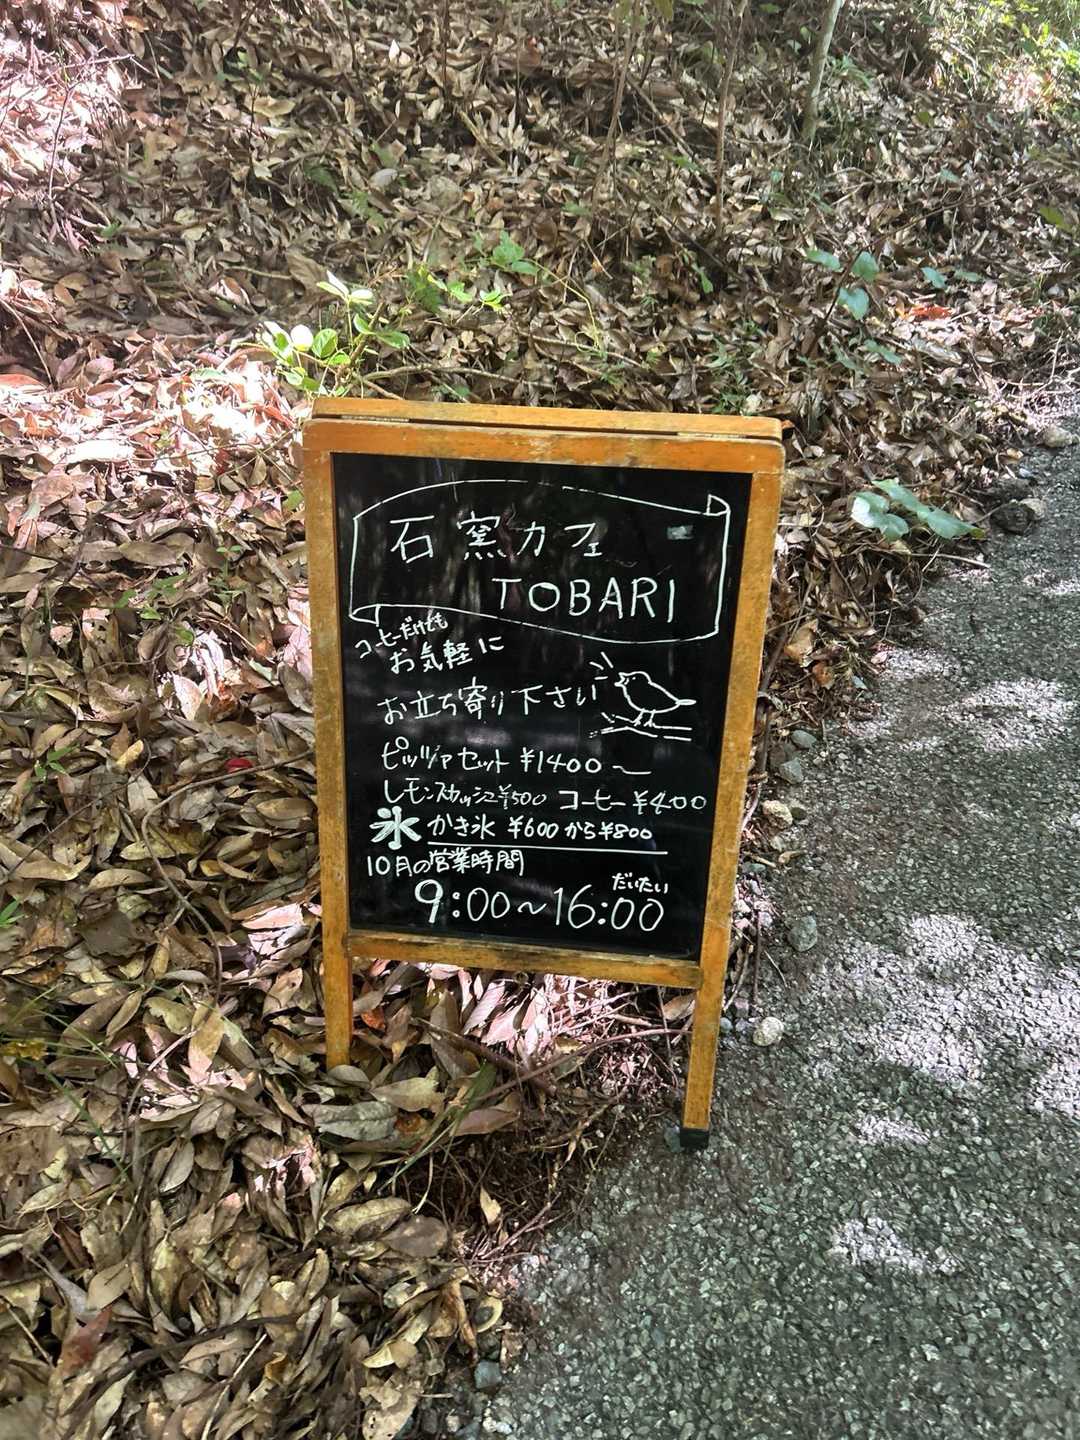 石窯カフェ
TOBARI
コーヒーだけでも
お気軽に
お立ち寄り下さい
ピッツァセット ¥1400〜
レモンスカッシュ¥500 コーヒー ¥400
氷 かき氷 ¥600から¥800
10月の営業時間
だいたい
9:00〜16:00